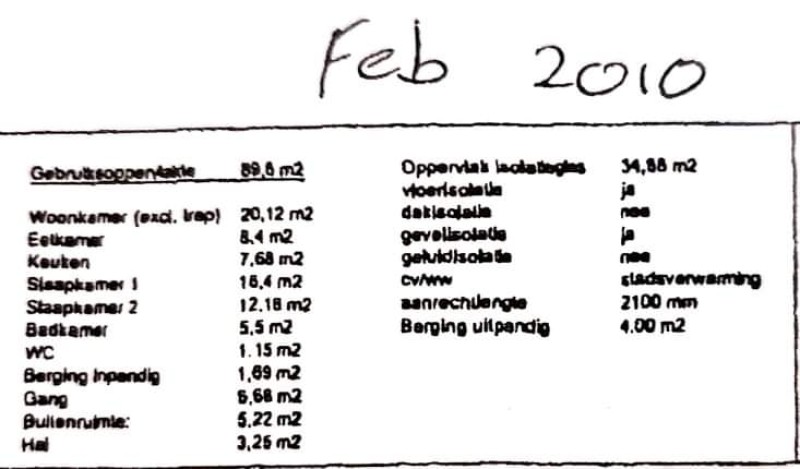 Feb 2010
Gebruiksoppervlakte 89,6 m2
Woonkamer (excl. trap) 20,12 m2
Eetkamer 8,4 m2
Keuken 7,68 m2
Slaapkamer 1 16,4 m2
Slaapkamer 2 12,18 m2
Badkamer 5,5 m2
WC 1.15 m2
Berging Inpandig 1,69 m2
Gang 6,68 m2
Buitenruimte: 5,22 m2
Hal 3,25 m2
Oppervlak isolatieglas 34,88 m2
vloerisolatie ja
dakisolatie nee
gevelisolatie ja
geluidisolatie nee
cv/ww stadsverwarming
aanrechtlengte 2100 mm
Berging uitpandig 4.00 m2